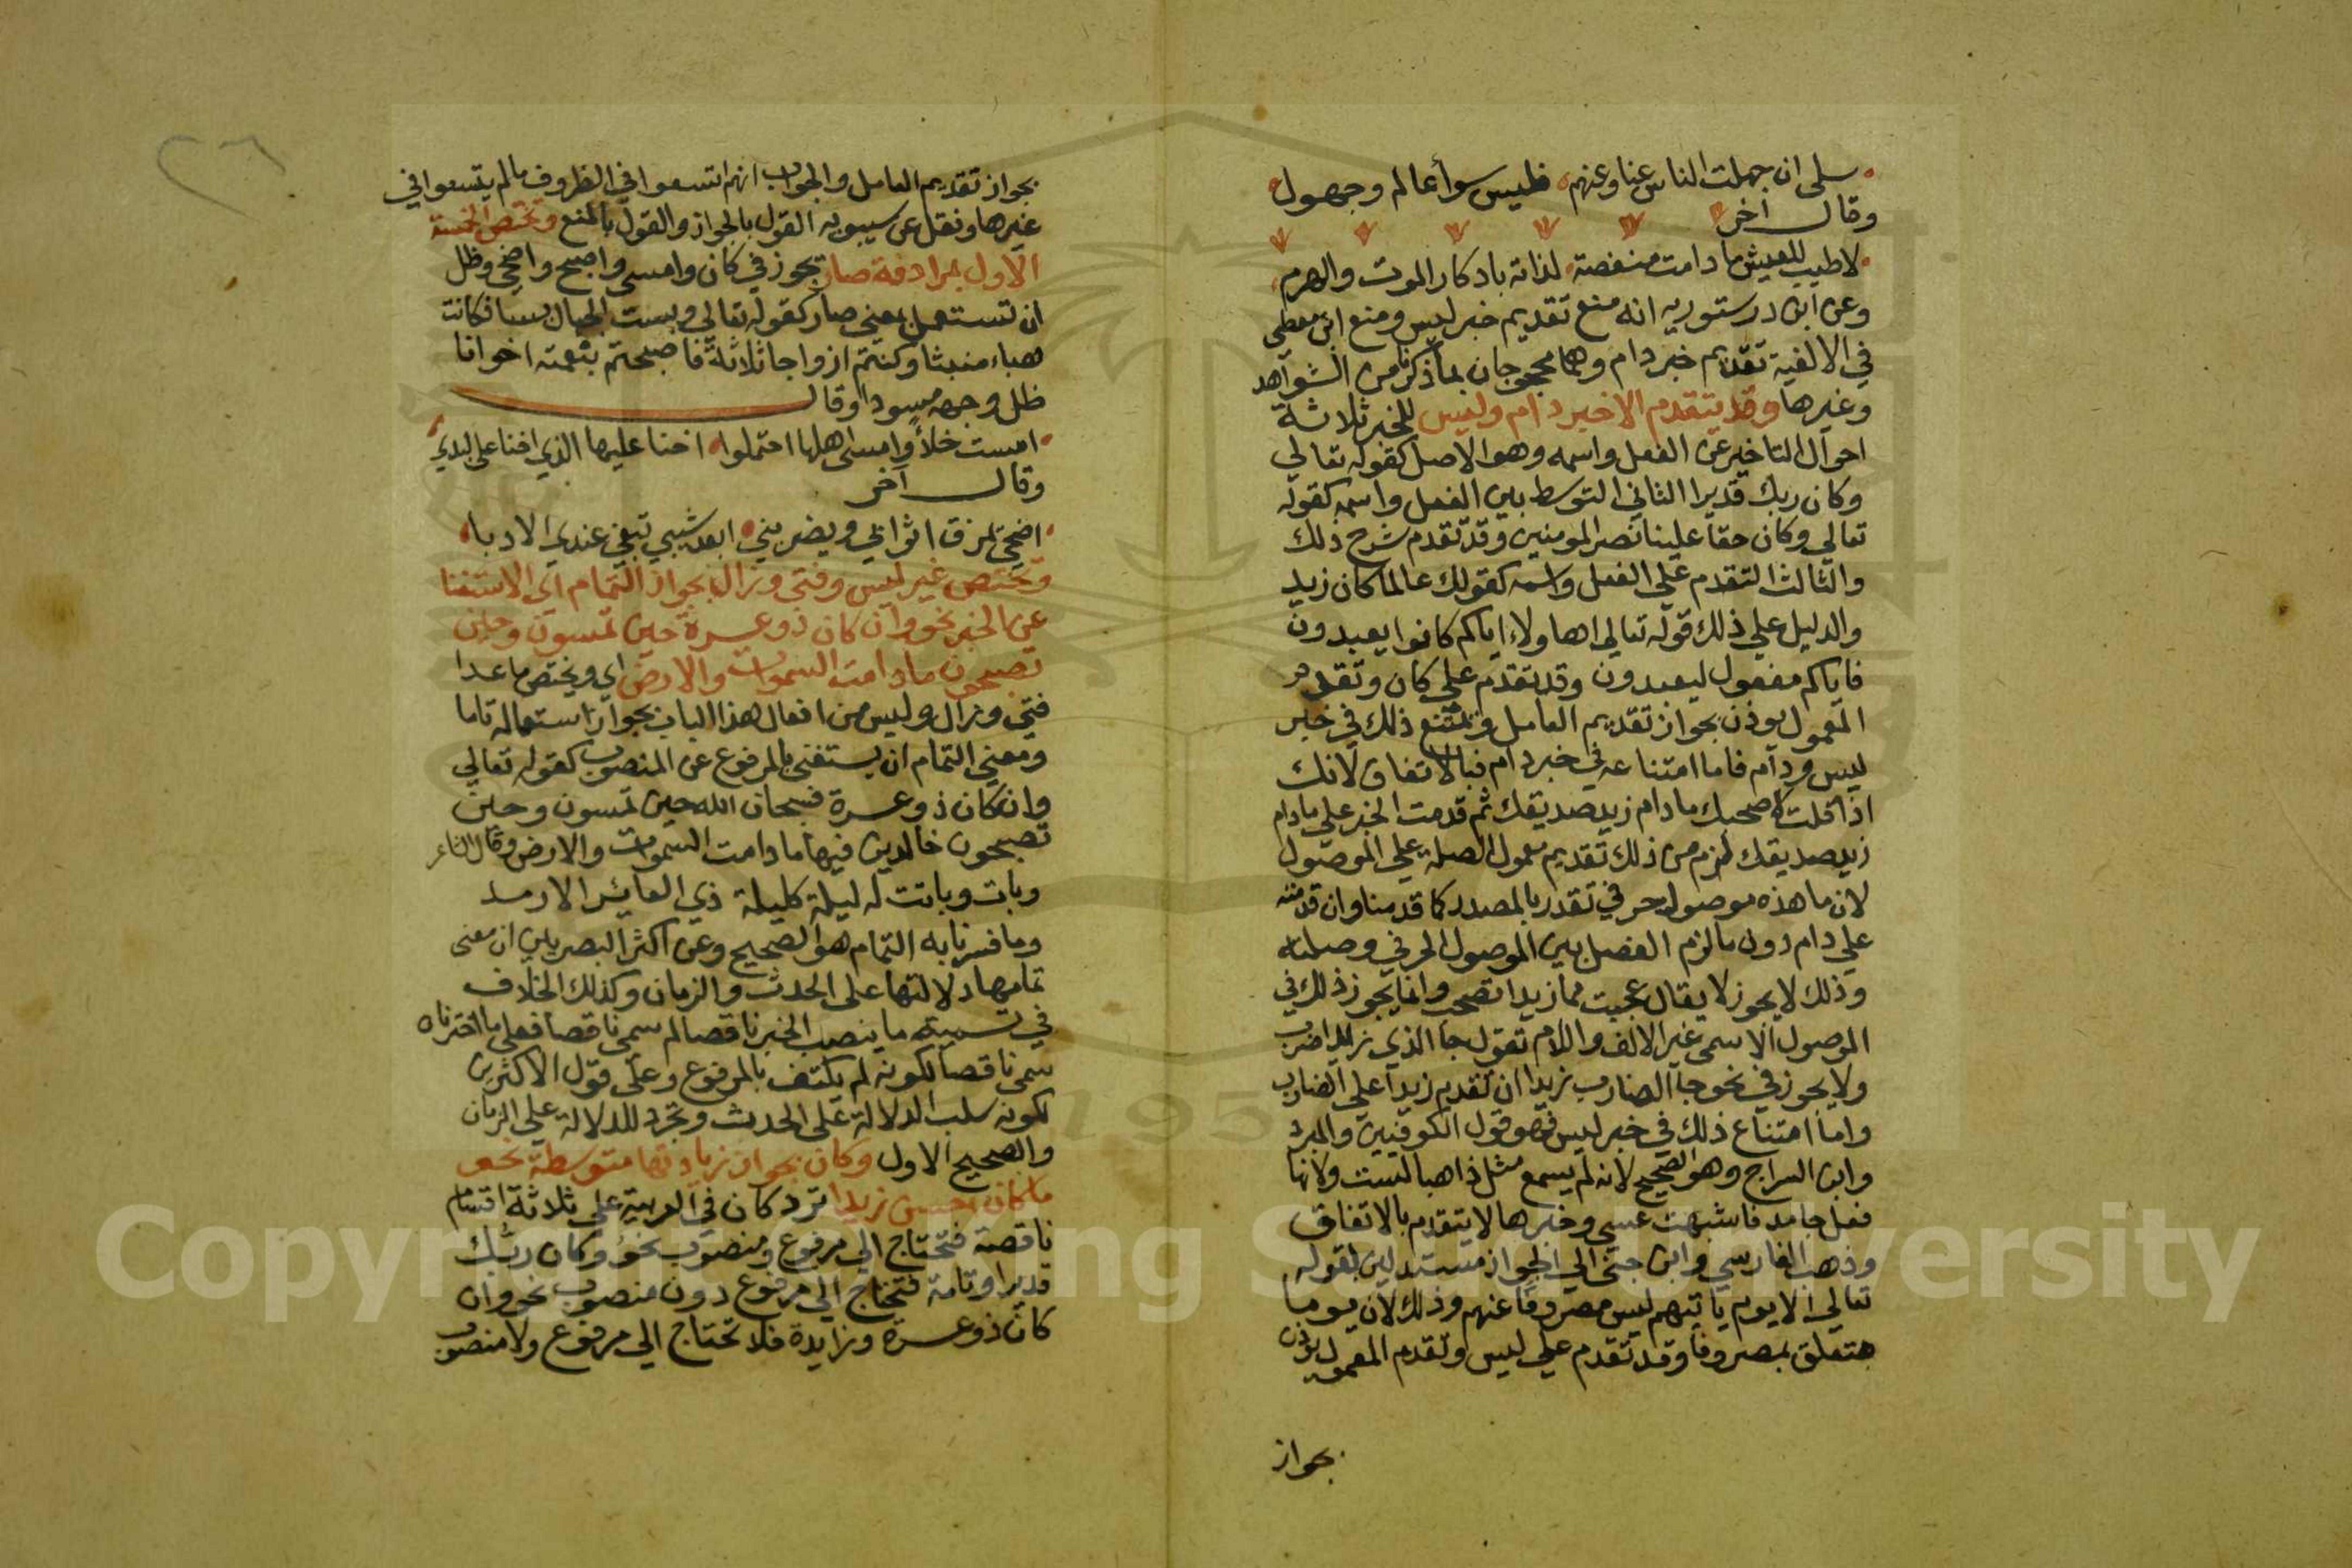 سلي ان جهلت الناس عنا وعنهم فليس سوأ عالم وجهول
وقال اخر
لا طيب للعيش ما دامت منغصة لذاته بادكار الموت والهرم
وعن ابن درستوريه انه منع تقديم خبر ليس ومنع ابن معطى
في الالفية تقديم خبر دام وهما محجوجان بما ذكرنا من الشواهد
وغيرها وقد يتقدم الاخير دام وليس للخبر ثلاثة
احوال التاخير عن الفعل واسمه وهو الاصل كقوله تعالي
وكان ربك قديرا الثاني التوسط بين الفعل واسمه كقوله
تعالي وكان حقا علينا نصر المومنين وقد تقدم شرح ذلك
والثالث التقدم علي الفعل واسمه كقولك عالما كان زيد
والدليل علي ذلك قوله تعالي اهاولاء اياكم كانوا يعبدون
فاياكم مفعول ليعبدون وقد تقدم علي كان وتقدم
المعمول يوذن بجواز تقديم العامل ويمتنع ذلك في خبر
ليس ودام فاما امتناعه في خبر دام فبالاتفاق لانك
اذا قلت لا صحبك ما دام زيد صديقك ثم قدمت الخبر علي مادام
زيد صديقك لزم من ذلك تقديم معمول الصلة علي الموصول
لان ما هذه موصول حرفي تقدر بالمصدر كما قدمنا وان قدمته
علي دام دون ما لزم الفصل بين الموصول الحرفي وصلته
وذلك لا يجوز لا يقال عجبت مما زيدا تصحب وانما يجوز ذلك في
الموصول الاسمي غير الالف واللام تقول جا الذي زيدا ضرب
ولا يجوز في نحو جا الضارب زيدا ان تقديم زيدا علي الضارب
واما امتناع ذلك في خبر ليس فهو قول الكوفيين والمبرد
وابن السراج وهو الصحيح لانه لم يسمع مثل ذاهبا لست ولانها
فعل جامد فاشبهت عسي وخبرها لا يتقدم بالاتفاق
وذهب الفارسي وابن جني الي الجواز مستدلين بقوله
تعالي الا يوم ياتيهم ليس مصروفا عنهم وذلك لان يوما
متعلق بمصروفا وقد تقدم علي ليس وتقدم المعمول يوذن
بجواز
٢٦
بجواز تقديم العامل والجواب انهم اتسعوا في الظروف ما لم يتسعوا في
غيرها ونقل عن سيبويه القول بالجواز والقول بالمنع وتختص الخمسة
الاول بمرادفة صار تجوز في كان وامسي واصبح واضحي وظل
ان تستعمل بمعني صار كقوله تعالي وبست الجبال بسا فكانت
هباء منبثا وكنتم ازواجا ثلاثة فاصبحتم بنعمته اخوانا
ظل وجهه مسودا وقال
امست خلأ وامسي اهلها احتملوا اخنا عليها الذي اخنا علي لبد
وقال اخر
اضحي يمزق اثوابي ويضربني ابعد شيبي تبغي عندي الادبا
وتختص غير ليس وفتي وزال بجواز التمام اي الاستغنا
عن الخبر نحو وان كان ذو عسرة حين تمسون وحين
تصبحون ما دامت السموات والارض اي ويختص ما عدا
فتي وزال وليس من افعال هذا الباب بجواز استعماله تاما
ومعني التمام ان يستغني بالمرفوع عن المنصوب كقوله تعالي
وان كان ذو عسرة فسبحان الله حين تمسون وحين
تصبحون خالدين فيها ما دامت السموات والارض وقال الشاعر
وبات وباتت له ليلة كليلة ذي العائر الارمد
وما فسرنا به التمام هو الصحيح وعن اكثر البصريين ان معنى
تمامها دلالتها علي الحدث والزمان وكذلك الخلاف
في تسمية ما ينصب الخبر ناقصا لم سمي ناقصا فعلي ما اخترناه
سمي ناقصا لكونه لم يكتف بالمرفوع وعلي قول الاكثرين
لكونه سلب الدلالة علي الحدث وتجرد للدلالة علي الزمان
والصحيح الاول وكان بجواز زيادتها متوسطة نحو
ما كان احسن زيدا ترد كان في العربية علي ثلاثة اقسام
ناقصة فتحتاج الي مرفوع ومنصوب نحو وكان ربك
قديرا وتامة فتحتاج الي مرفوع دون منصوب نحو وان
كان ذو عسرة وزايدة فلا تحتاج الي مرفوع ولا منصوب
Copyright © King Saud University